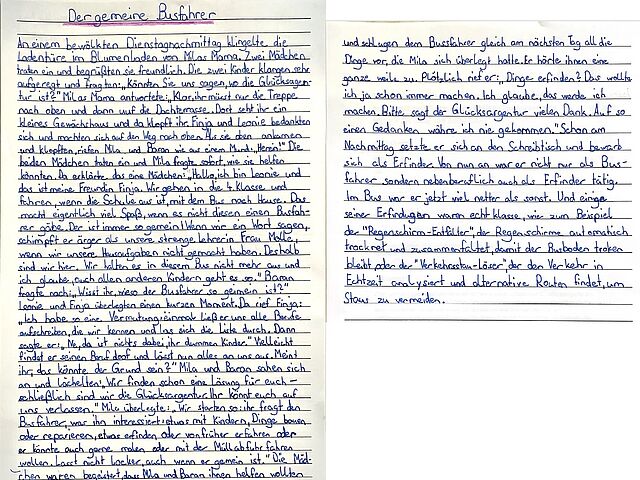 Der gemeine Busfahrer
An einem bewölkten Dienstagnachmittag klingelte die
Ladentüre im Blumenladen von Milas Mama. Zwei Mädchen
traten ein und begrüßten sie freundlich. Die zwei Kinder klangen sehr
aufgeregt und fragten: „Könnten Sie uns sagen, wo die Glücksagen-
tur ist?" Milas Mama antwortete: „Klar, ihr müsst nur die Treppe
nach oben und dann auf die Dachterrasse. Dort seht ihr ein
kleines Gewächshaus und da klopft ihr. Finja und Leonie bedankten
sich und machten sich auf den Weg nach oben. Als sie oben ankamen
und klopften, riefen Mila und Baron wie aus einem Mund: „Herein!" Die
beiden Mädchen traten ein und Mila fragte sofort, wie sie helfen
könnten. Da erklärte das eine Mädchen: „Hallo, ich bin Leonie und
das ist meine Freundin Finja. Wir gehen in die 4. Klasse und
fahren, wenn die Schule aus ist, mit dem Bus nach Hause. Das
macht eigentlich viel Spaß, wenn es nicht diesen einen Busfah-
rer gäbe. Der ist immer so gemein! Wenn wir ein Wort sagen,
schimpft er ärger als unsere strenge Lehrerin Frau Molle,
wenn wir unsere Hausaufgaben nicht gemacht haben. Deshalb
sind wir hier. Wir halten es in diesem Bus nicht mehr aus und
ich glaube, auch allen anderen Kindern geht es so." Baron
fragte noch: „Wisst ihr, wieso der Busfahrer so gemein ist?"
Leonie und Finja überlegten einen kurzen Moment. Da rief Finja:
„Ich habe so eine Vermutung: Einmal ließ er uns alle Berufe
aufschreiben, die wir kennen und las sich die Liste durch. Dann
sagte er: „Ne, da ist nichts dabei, ihr dummen Kinder." Vielleicht
findet er seinen Beruf doof und lässt nun alles an uns aus. Meint
ihr, das könnte der Grund sein?" Mila und Baron sahen sich
an und lächelten: „Wir finden schon eine Lösung für euch –
schließlich sind wir die Glücksagentur. Ihr könnt euch auf
uns verlassen." Mila überlegte: „Wir starten so: ihr fragt den
Busfahrer, was ihn interessiert: etwas mit Kindern, Dinge bauen
oder reparieren, etwas erfinden oder von früher erfahren oder
er könnte auch gerne malen oder mit der Müllabfuhr fahren
wollen. Lasst nicht locker, auch wenn er gemein ist." Die Mäd-
chen waren begeistert, dass Mila und Baron ihnen helfen wollten
und schlugen dem Bussfahrer gleich am nächsten Tag all die
Dinge vor, die Mila sich überlegt hatte. Er hörte ihnen eine
ganze weile zu. Plötzlich rief er: „Dinge erfinden? Das wollte
ich ja schon immer machen. Ich glaube, das werde ich
machen. Bitte sagt der Glücksargentur vielen Dank. Auf so
einen Gedanken währe ich nie gekommen." Schon am
Nachmittag setzte er sich an den Schreibtisch und bewarb
sich als Erfinder. Von nun an war er nicht nur als Bus-
fahrer sondern nebenberuflich auch als Erfinder tätig.
Im Bus war er jetzt viel netter als sonst. Und einige
seiner Erfindugen waren echt klasse, wie zum Beispiel
der "Regenschirm-Entfalter", der Regenschirme automatisch
trocknet und zusammenfaltet, damit der Busboden troken
bleibt, oder der "Verkehrsstau-Löser", der den Verkehr in
Echtzeit analysiert und alternative Routen findet, um
Staus zu vermeiden.